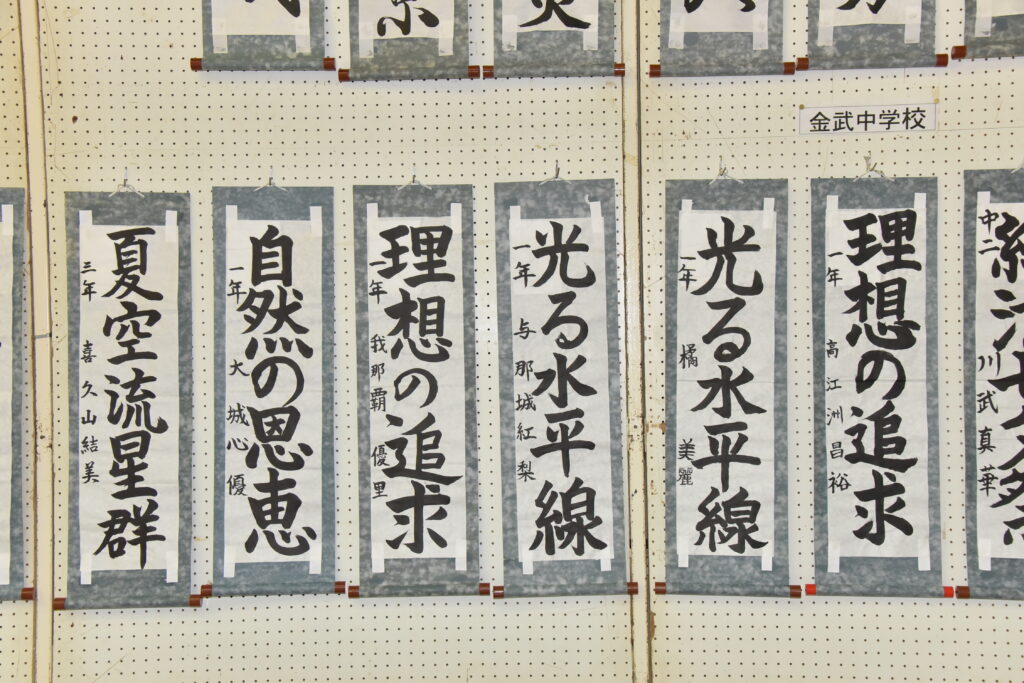 金武中学校
夏空流星群
三年 喜久山結美
自然の恩恵
一年 大城心優
理想の追求
一年 我那覇優里
光る水平線
一年 与那城紅梨
光る水平線
一年 橘美麗
理想の追求
一年 高江洲昌裕
中二 川武真華